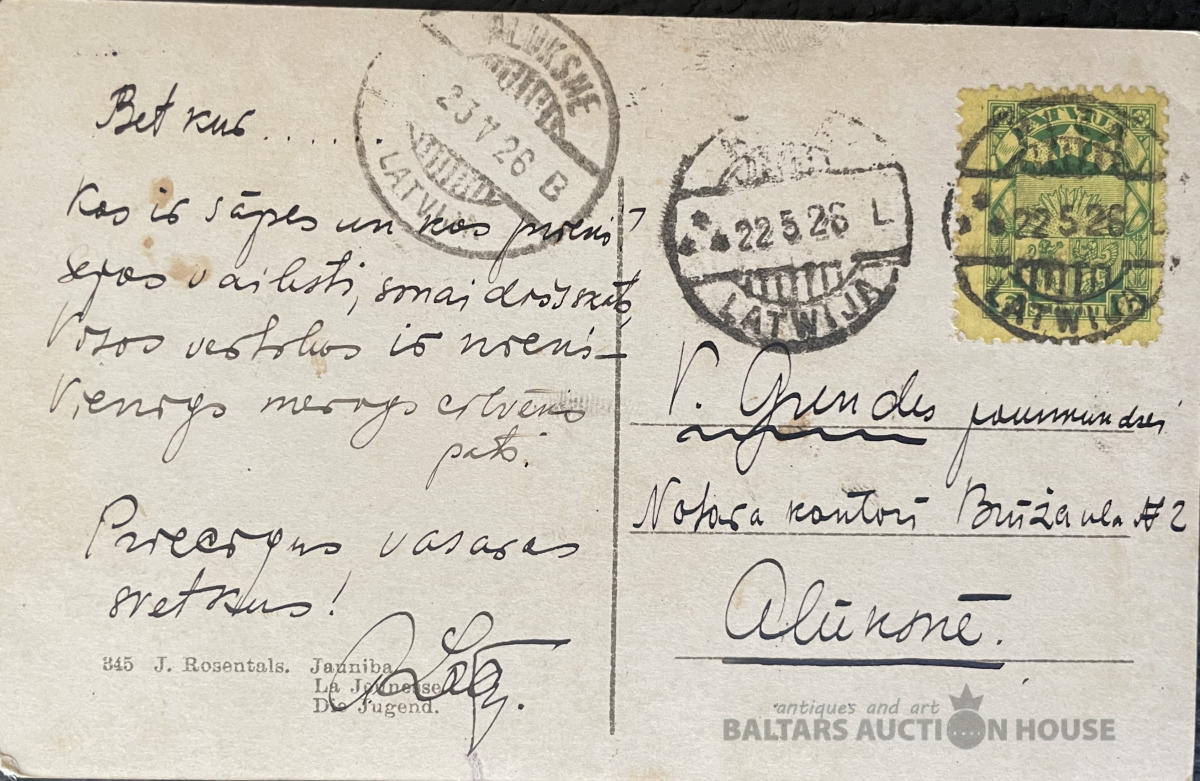 Bet kur......
Kas ir sāpes un kas prieks?
sejas vaibsti,
Visas vērtības ir
Vienīgs mērogs cilvēks
pats.
Priecīgus vasaras
svētkus!
345 J. Rosentals. Jauniba.
La Jeunesse.
Die Jugend.
ALUKSNE
23 V 26 B
LATVIJA
22 5 26 L
LATWIJA
LATVIJA
22 5 26 L
LATWIJA
V. Grendes jaunkundzei
Notara kontorī Brūža ula № 2
Alūksnē.
antiques and art
BALTARS AUCTION HOUSE